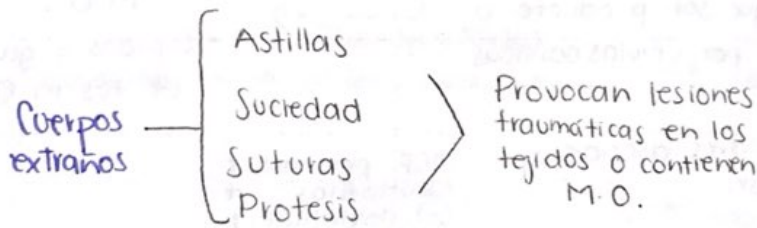 Cuerpos
extraños
Astillas
Suciedad
Suturas
Protesis
Provocan lesiones
traumáticas en los
tejidos o contienen
M.O.